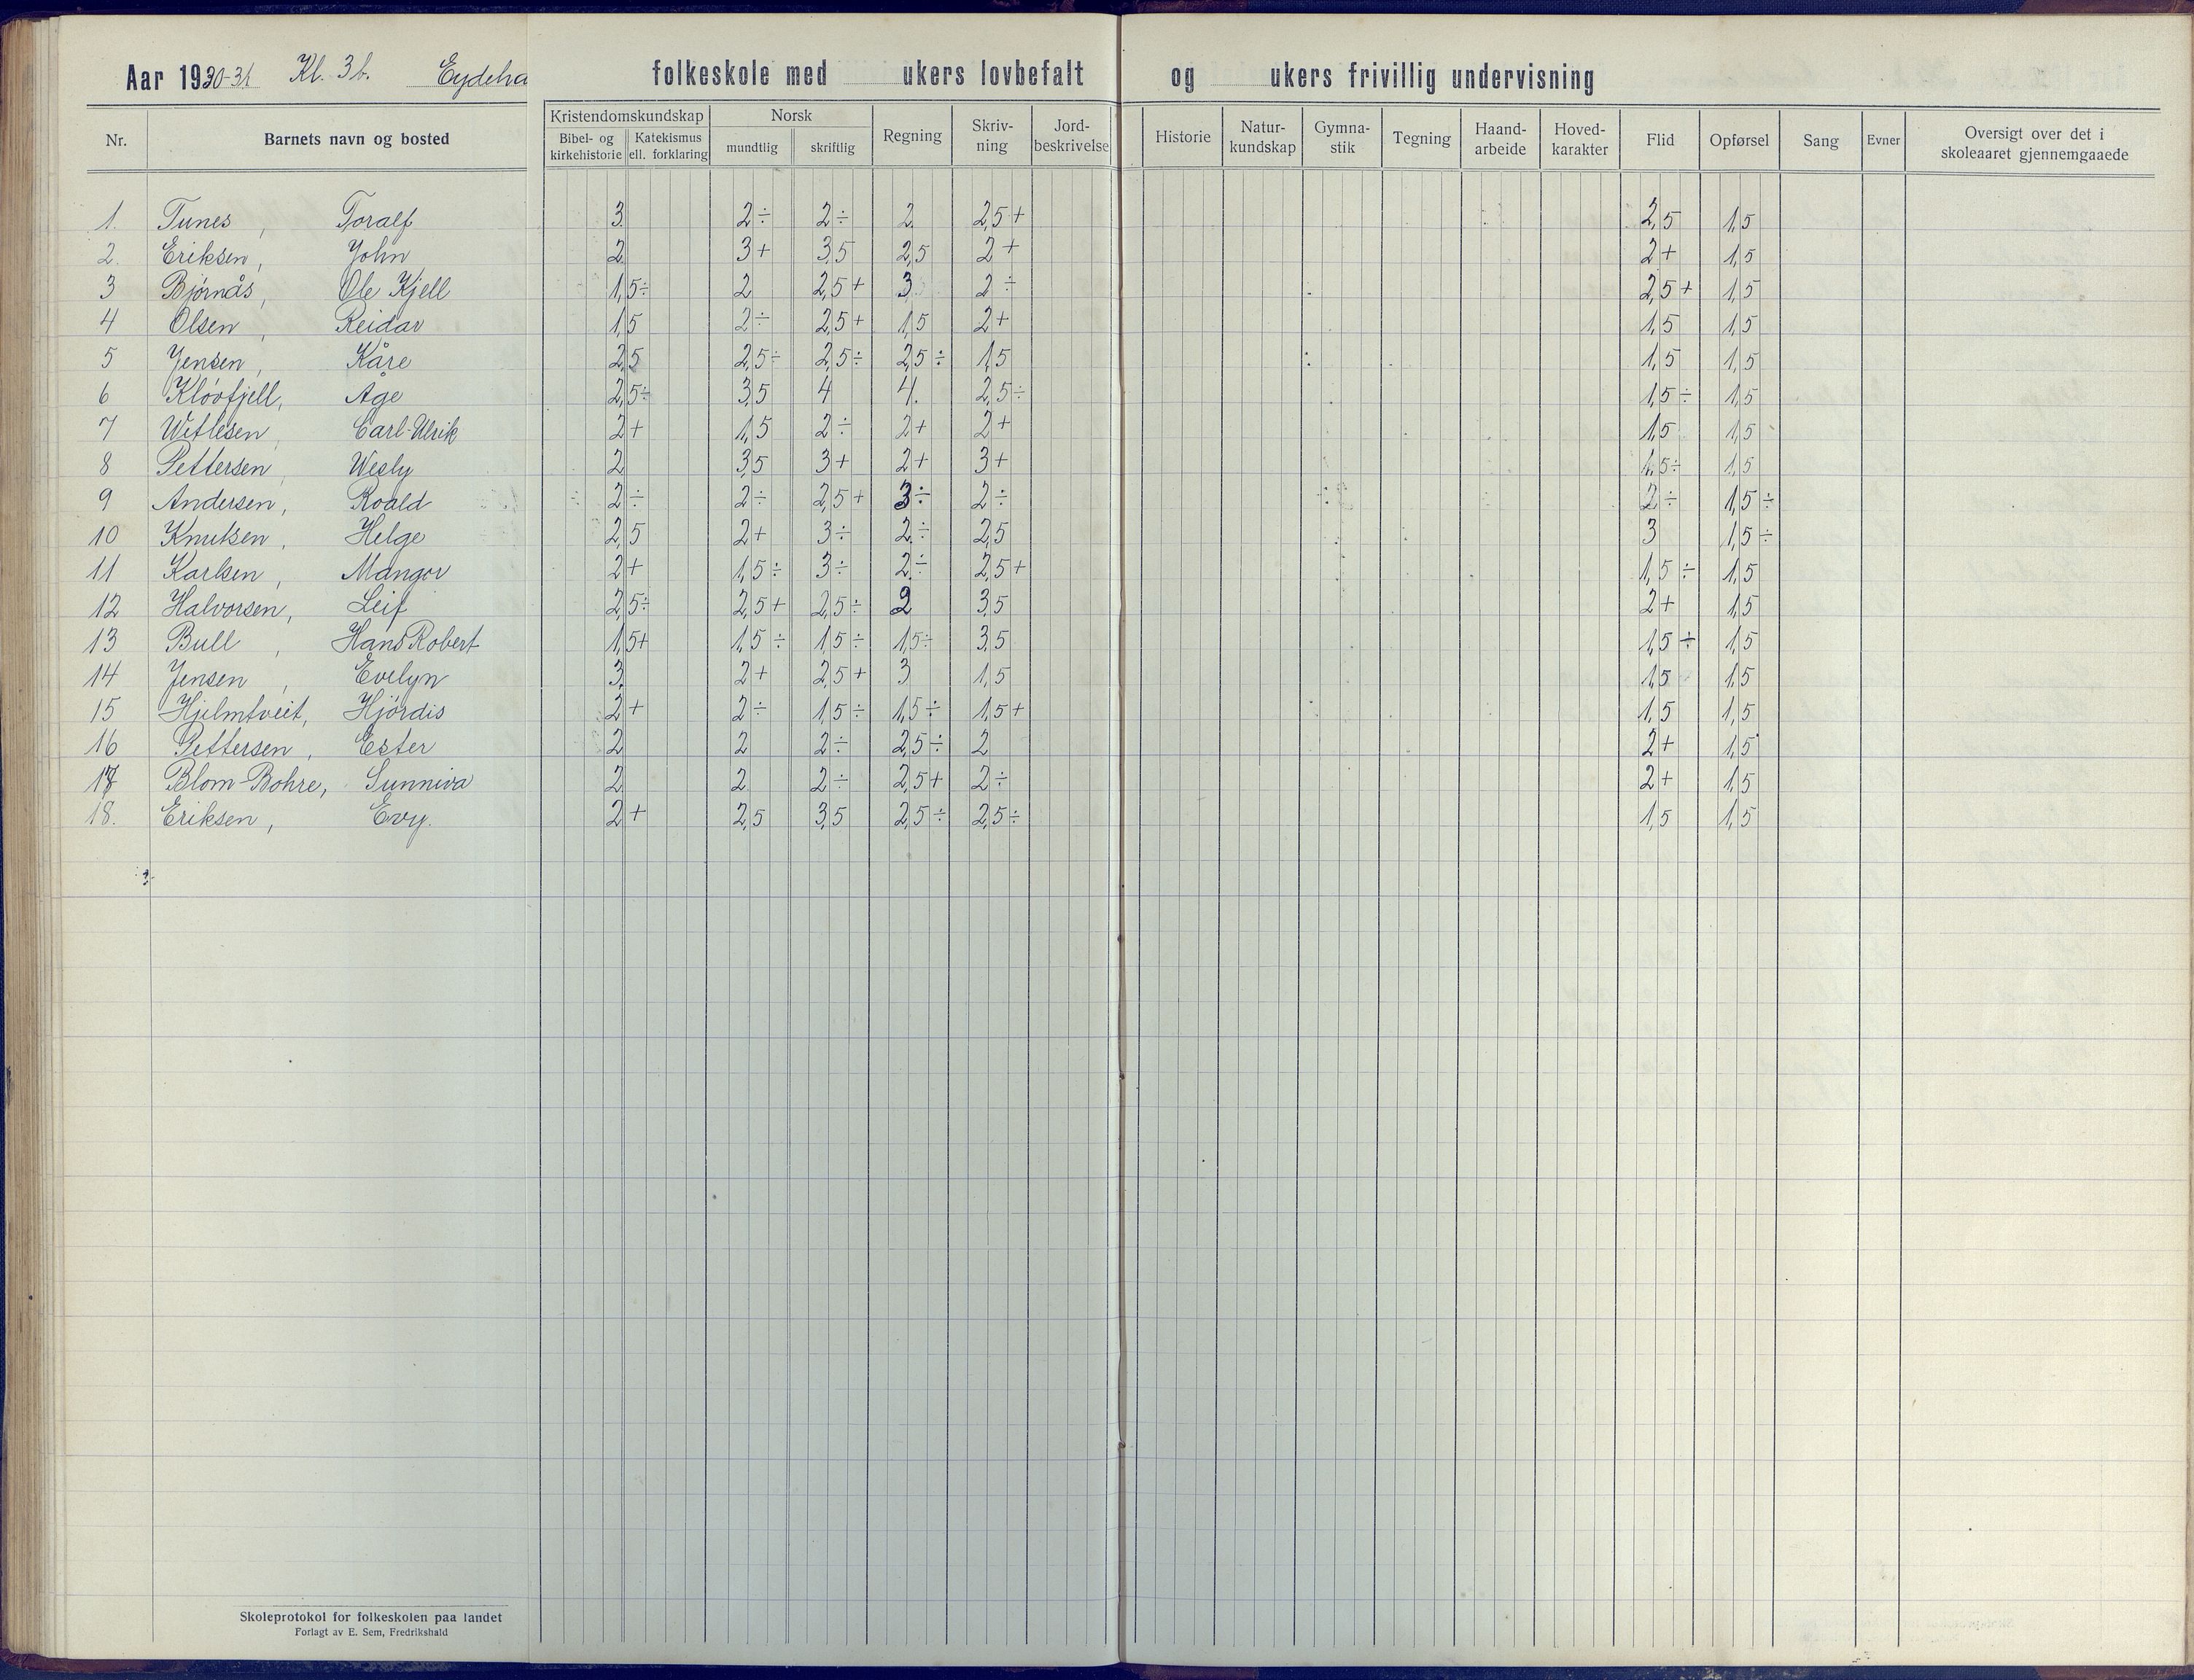 Aar 1930-31 Kl. 3b. Eydeha folkeskole med ukers lovbefalt og ukers frivillig undervisning
Nr. Barnets navn og bosted Kristendomskundskap Bibel- og kirkehistorie Katekismus ell. forklaring Norsk mundtlig skriftlig Regning Skriv-ning Jord-beskrivelse Historie Natur-kundskap Gymna-stik Tegning Haand-arbeide Hoved-karakter Flid Opførsel Sang Evner Oversigt over det i skoleaaret gjennemgaaede
1. Tunes, Toralf 3 2÷ 2÷ 2 2,5+ 2,5 1,5
2. Eriksen, John 2 3+ 3,5 2,5 2+ 2+ 1,5
3 Bjørnås, Ole Kjell 1,5÷ 2 2,5+ 3 2÷ 2,5+ 1,5
4 Olsen, Reidar 1,5 2÷ 2,5+ 1,5 2+ 1,5 1,5
5 Jensen, Kåre 2,5 2,5÷ 2,5÷ 2,5÷ 1,5 1,5 1,5
6 Kløvfjell, Åge 2,5÷ 3,5 4 4. 2,5÷ 1,5÷ 1,5
7 Witlesen, Carl-Ulrik 2+ 1,5 2÷ 2+ 2+ 1,5 1,5
8 Pettersen, Wesly 2 3,5 3+ 2+ 3+ 1,5÷ 1,5
9 Andersen, Roald 2÷ 2÷ 2,5+ 3÷ 2÷ 2÷ 1,5÷
10 Knutsen, Helge 2,5 2+ 3÷ 2÷ 2,5 3 1,5÷
11 Karlsen, Mangor 2+ 1,5÷ 3÷ 2÷ 2,5+ 1,5÷ 1,5
12 Halvorsen, Leif 2,5÷ 2,5+ 2,5÷ 2 3,5 2+ 1,5
13 Bull, Hans Robert 1,5+ 1,5÷ 1,5÷ 1,5÷ 3,5 1,5÷ 1,5
14 Jensen, Evelyn 3 2+ 2,5+ 3 1,5 1,5 1,5
15 Hjelmtveit, Hjördis 2+ 2÷ 1,5÷ 1,5÷ 1,5+ 1,5 1,5
16 Pettersen, Ester 2 2 2÷ 2,5÷ 2 2+ 1,5
17 Blom-Bohre, Sunniva 2 2 2÷ 2,5+ 2÷ 2+ 1,5
18. Eriksen, Evy. 2+ 2,5 3,5 2,5÷ 2,5÷ 1,5 1,5
Skoleprotokol for folkeskolen paa landet
Forlagt av E. Sem, Fredrikshald